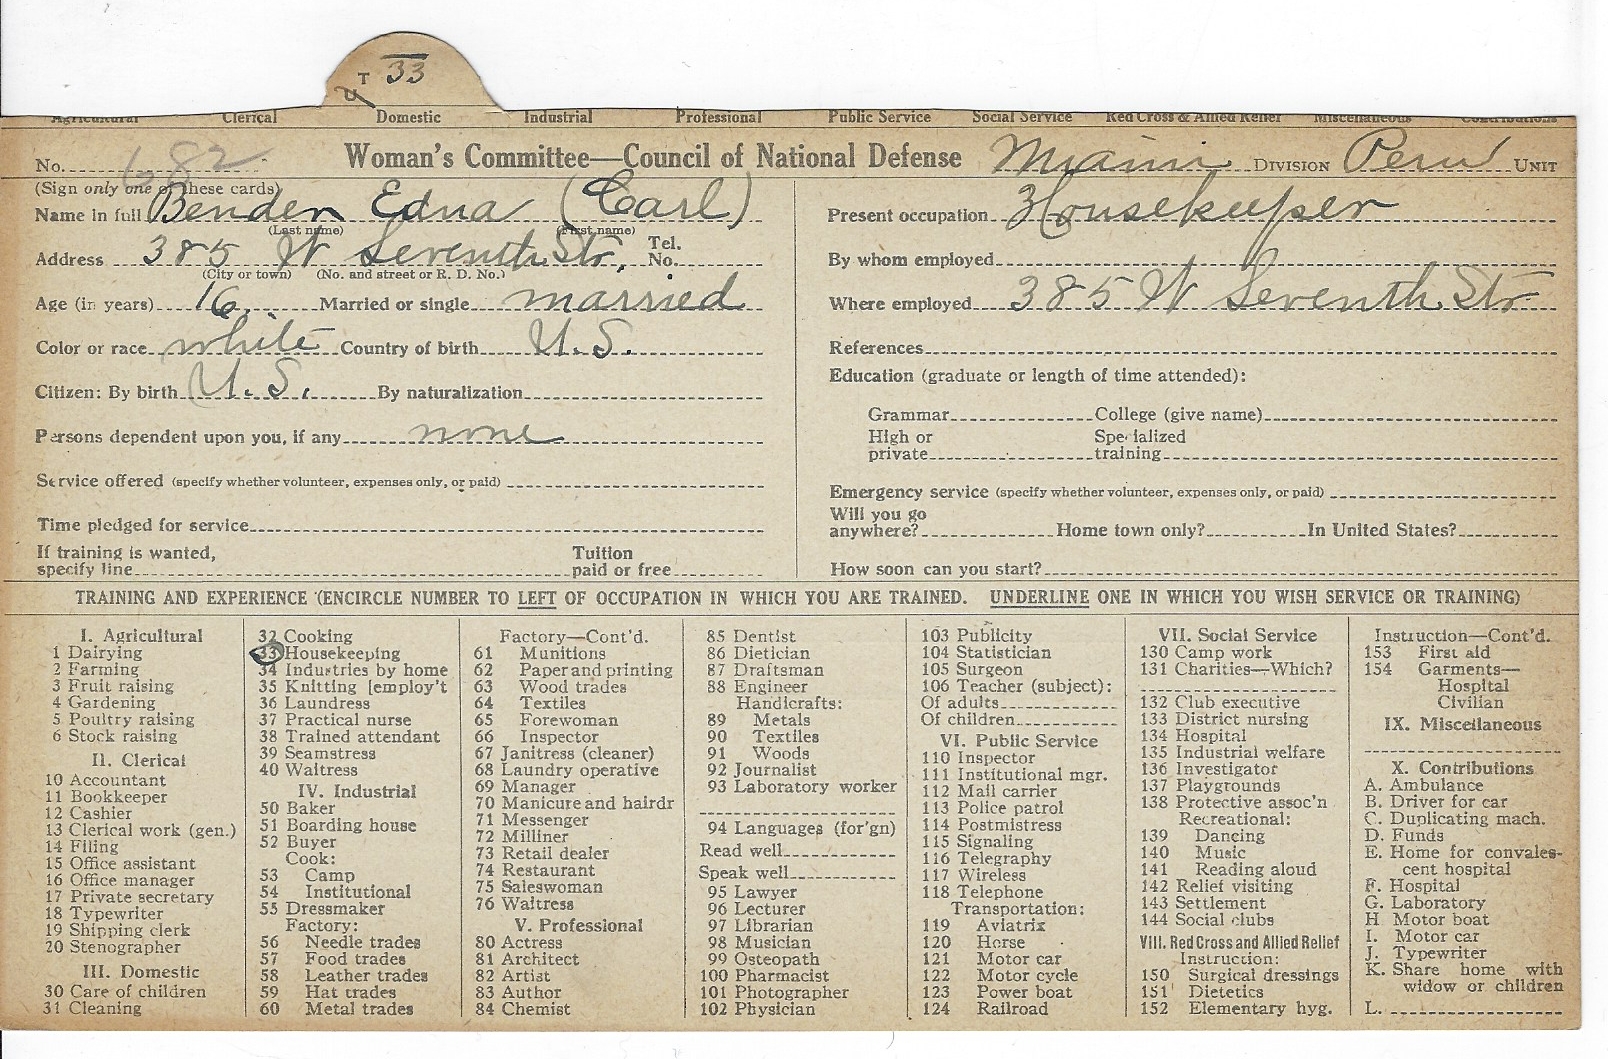 T 33
Agricultural Clerical Domestic Industrial Professional Public Service Social Service Red Cross & Allied Relief Miscellaneous Contributions
No. 682 Woman's Committee—Council of National Defense Miami DIVISION Peru UNIT
(Sign only one of these cards)
Name in full Bender Edna (Carl)
(Last name) (First name)
Address 385 W Seventh Str. Tel. No.
(City or town) (No. and street or R. D. No.)
Age (in years) 16 Married or single married
Color or race white Country of birth U. S.
Citizen: By birth U. S. By naturalization
Persons dependent upon you, if any none
Service offered (specify whether volunteer, expenses only, or paid)
Time pledged for service
If training is wanted,
specify line Tuition paid or free
Present occupation Housekeeper
By whom employed
Where employed 385 W Seventh Str.
References
Education (graduate or length of time attended):
Grammar College (give name)
High or private Specialized training
Emergency service (specify whether volunteer, expenses only, or paid)
Will you go
anywhere? Home town only? In United States?
How soon can you start?
TRAINING AND EXPERIENCE (ENCIRCLE NUMBER TO LEFT OF OCCUPATION IN WHICH YOU ARE TRAINED. UNDERLINE ONE IN WHICH YOU WISH SERVICE OR TRAINING)
I. Agricultural
1 Dairying
2 Farming
3 Fruit raising
4 Gardening
5 Poultry raising
6 Stock raising
II. Clerical
10 Accountant
11 Bookkeeper
12 Cashier
13 Clerical work (gen.)
14 Filing
15 Office assistant
16 Office manager
17 Private secretary
18 Typewriter
19 Shipping clerk
20 Stenographer
III. Domestic
30 Care of children
31 Cleaning
32 Cooking
33 Housekeeping
34 Industries by home
35 Knitting [employ't
36 Laundress
37 Practical nurse
38 Trained attendant
39 Seamstress
40 Waitress
IV. Industrial
50 Baker
51 Boarding house
52 Buyer
Cook:
53 Camp
54 Institutional
55 Dressmaker
Factory:
56 Needle trades
57 Food trades
58 Leather trades
59 Hat trades
60 Metal trades
Factory—Cont'd.
61 Munitions
62 Paper and printing
63 Wood trades
64 Textiles
65 Forewoman
66 Inspector
67 Janitress (cleaner)
68 Laundry operative
69 Manager
70 Manicure and hairdr
71 Messenger
72 Milliner
73 Retail dealer
74 Restaurant
75 Saleswoman
76 Waitress
V. Professional
80 Actress
81 Architect
82 Artist
83 Author
84 Chemist
85 Dentist
86 Dietician
87 Draftsman
88 Engineer
Handicrafts:
89 Metals
90 Textiles
91 Woods
92 Journalist
93 Laboratory worker
94 Languages (for'gn)
Read well
Speak well
95 Lawyer
96 Lecturer
97 Librarian
98 Musician
99 Osteopath
100 Pharmacist
101 Photographer
102 Physician
103 Publicity
104 Statistician
105 Surgeon
106 Teacher (subject):
Of adults
Of children
VI. Public Service
110 Inspector
111 Institutional mgr.
112 Mail carrier
113 Police patrol
114 Postmistress
115 Signaling
116 Telegraphy
117 Wireless
118 Telephone
Transportation:
119 Aviatrix
120 Horse
121 Motor car
122 Motor cycle
123 Power boat
124 Railroad
VII. Social Service
130 Camp work
131 Charities—Which?
132 Club executive
133 District nursing
134 Hospital
135 Industrial welfare
136 Investigator
137 Playgrounds
138 Protective assoc'n
Recreational:
139 Dancing
140 Music
141 Reading aloud
142 Relief visiting
143 Settlement
144 Social clubs
VIII. Red Cross and Allied Relief
Instruction:
150 Surgical dressings
151 Dietetics
152 Elementary hyg.
Instruction—Cont'd.
153 First aid
154 Garments—
Hospital
Civilian
IX. Miscellaneous
X. Contributions
A. Ambulance
B. Driver for car
C. Duplicating mach.
D. Funds
E. Home for convales-
cent hospital
F. Hospital
G. Laboratory
H Motor boat
I. Motor car
J. Typewriter
K. Share home with
widow or children
L.